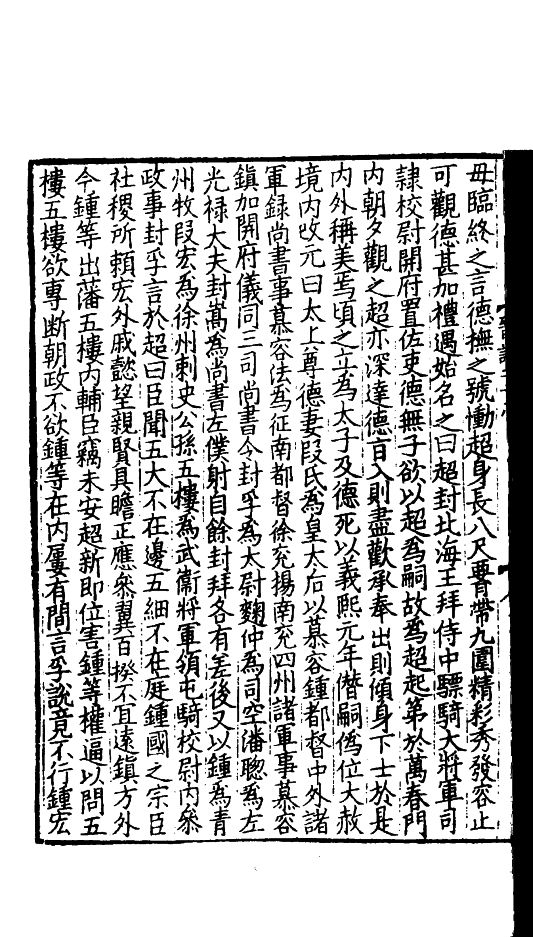 毋臨終之言德撫之號慟超身長八尺要帶九圍精彩秀發容止
可觀德甚加禮遇始名之曰超封北海王拜侍中驃騎大將軍司
隸校尉開府置佐吏德無子欲以超為嗣故為超起第於萬春門
內朝夕觀之超亦深達德旨入則盡歡承奉出則傾身下士於是
內外稱美焉頃之立為太子及德死以義熙元年僭嗣偽位大赦
境內改元曰太上尊德妻段氏為皇太后以慕容鍾都督中外諸
軍錄尚書事慕容法為征南都督徐兖揚南兖四州諸軍事慕容
鎮加開府儀同三司尚書令封孚為太尉麴仲為司空潘聰為左
光禄大夫封嵩為尚書左僕射自餘封拜各有差後又以鍾為青
州牧段宏為徐州刺史公孫五樓為武衞將軍領屯騎校尉內叅
政事封孚言於超曰臣聞五大不在邊五細不在庭鍾國之宗臣
社稷所賴宏外戚懿望親賢具瞻正應叅翼百揆不宜遠鎮方外
今鍾等出藩五樓內輔臣竊未安超新即位害鍾等權逼以問五
樓五樓欲專斷朝政不欲鍾等在內屢有間言孚說竟不行鍾宏